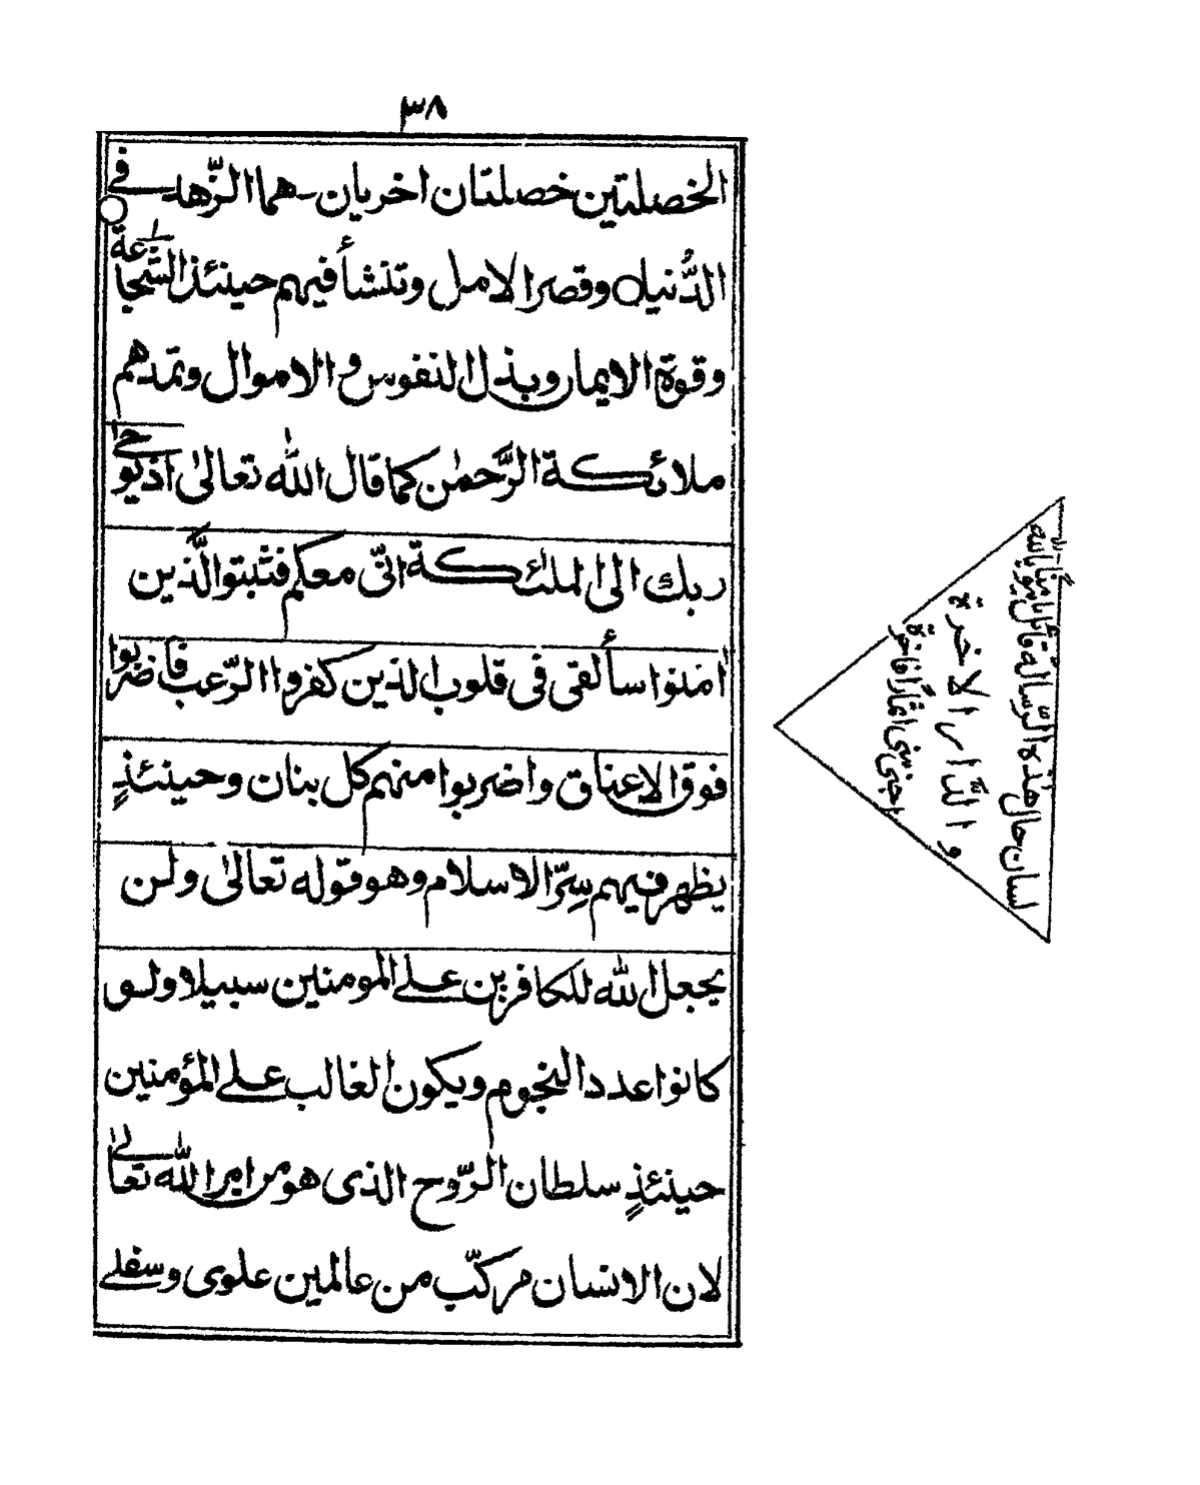 ٣٨
الخصلتين خصلتان اخريان هما الزّهد في
الدُّنيا وقصر الامل وتنشأ فيهم حينئذ الشّجاعة
وقوة الايمان وبذل النفوس و الاموال وتمدهم
ملائكة الرَّحمٰن كما قال اللّٰه تعالىٰ اذ يوحي
ربك الى الملٰئكة انّى معكم فثبتوا الَّذين
اٰمنوا سألقى فى قلوب الذين كفروا الرّعب فاضربوا
فوق الاعناق واضربوا منهم كل بنان وحينئذٍ
يظهر فيهم سِرّ الاسلام وهو قوله تعالىٰ ولن
يجعل اللّٰه للكافرين على المومنين سبيلا ولو
كانوا عدد النجوم ويكون الغالب على المؤمنين
حينئذٍ سلطان الرّوح الذى هو من امر اللّٰه تعالىٰ
لان الانسان مركّب من عالمين علوى وسفلي
لسان حال هذه الرّسالة قائل يا
و الدّار الاخرة